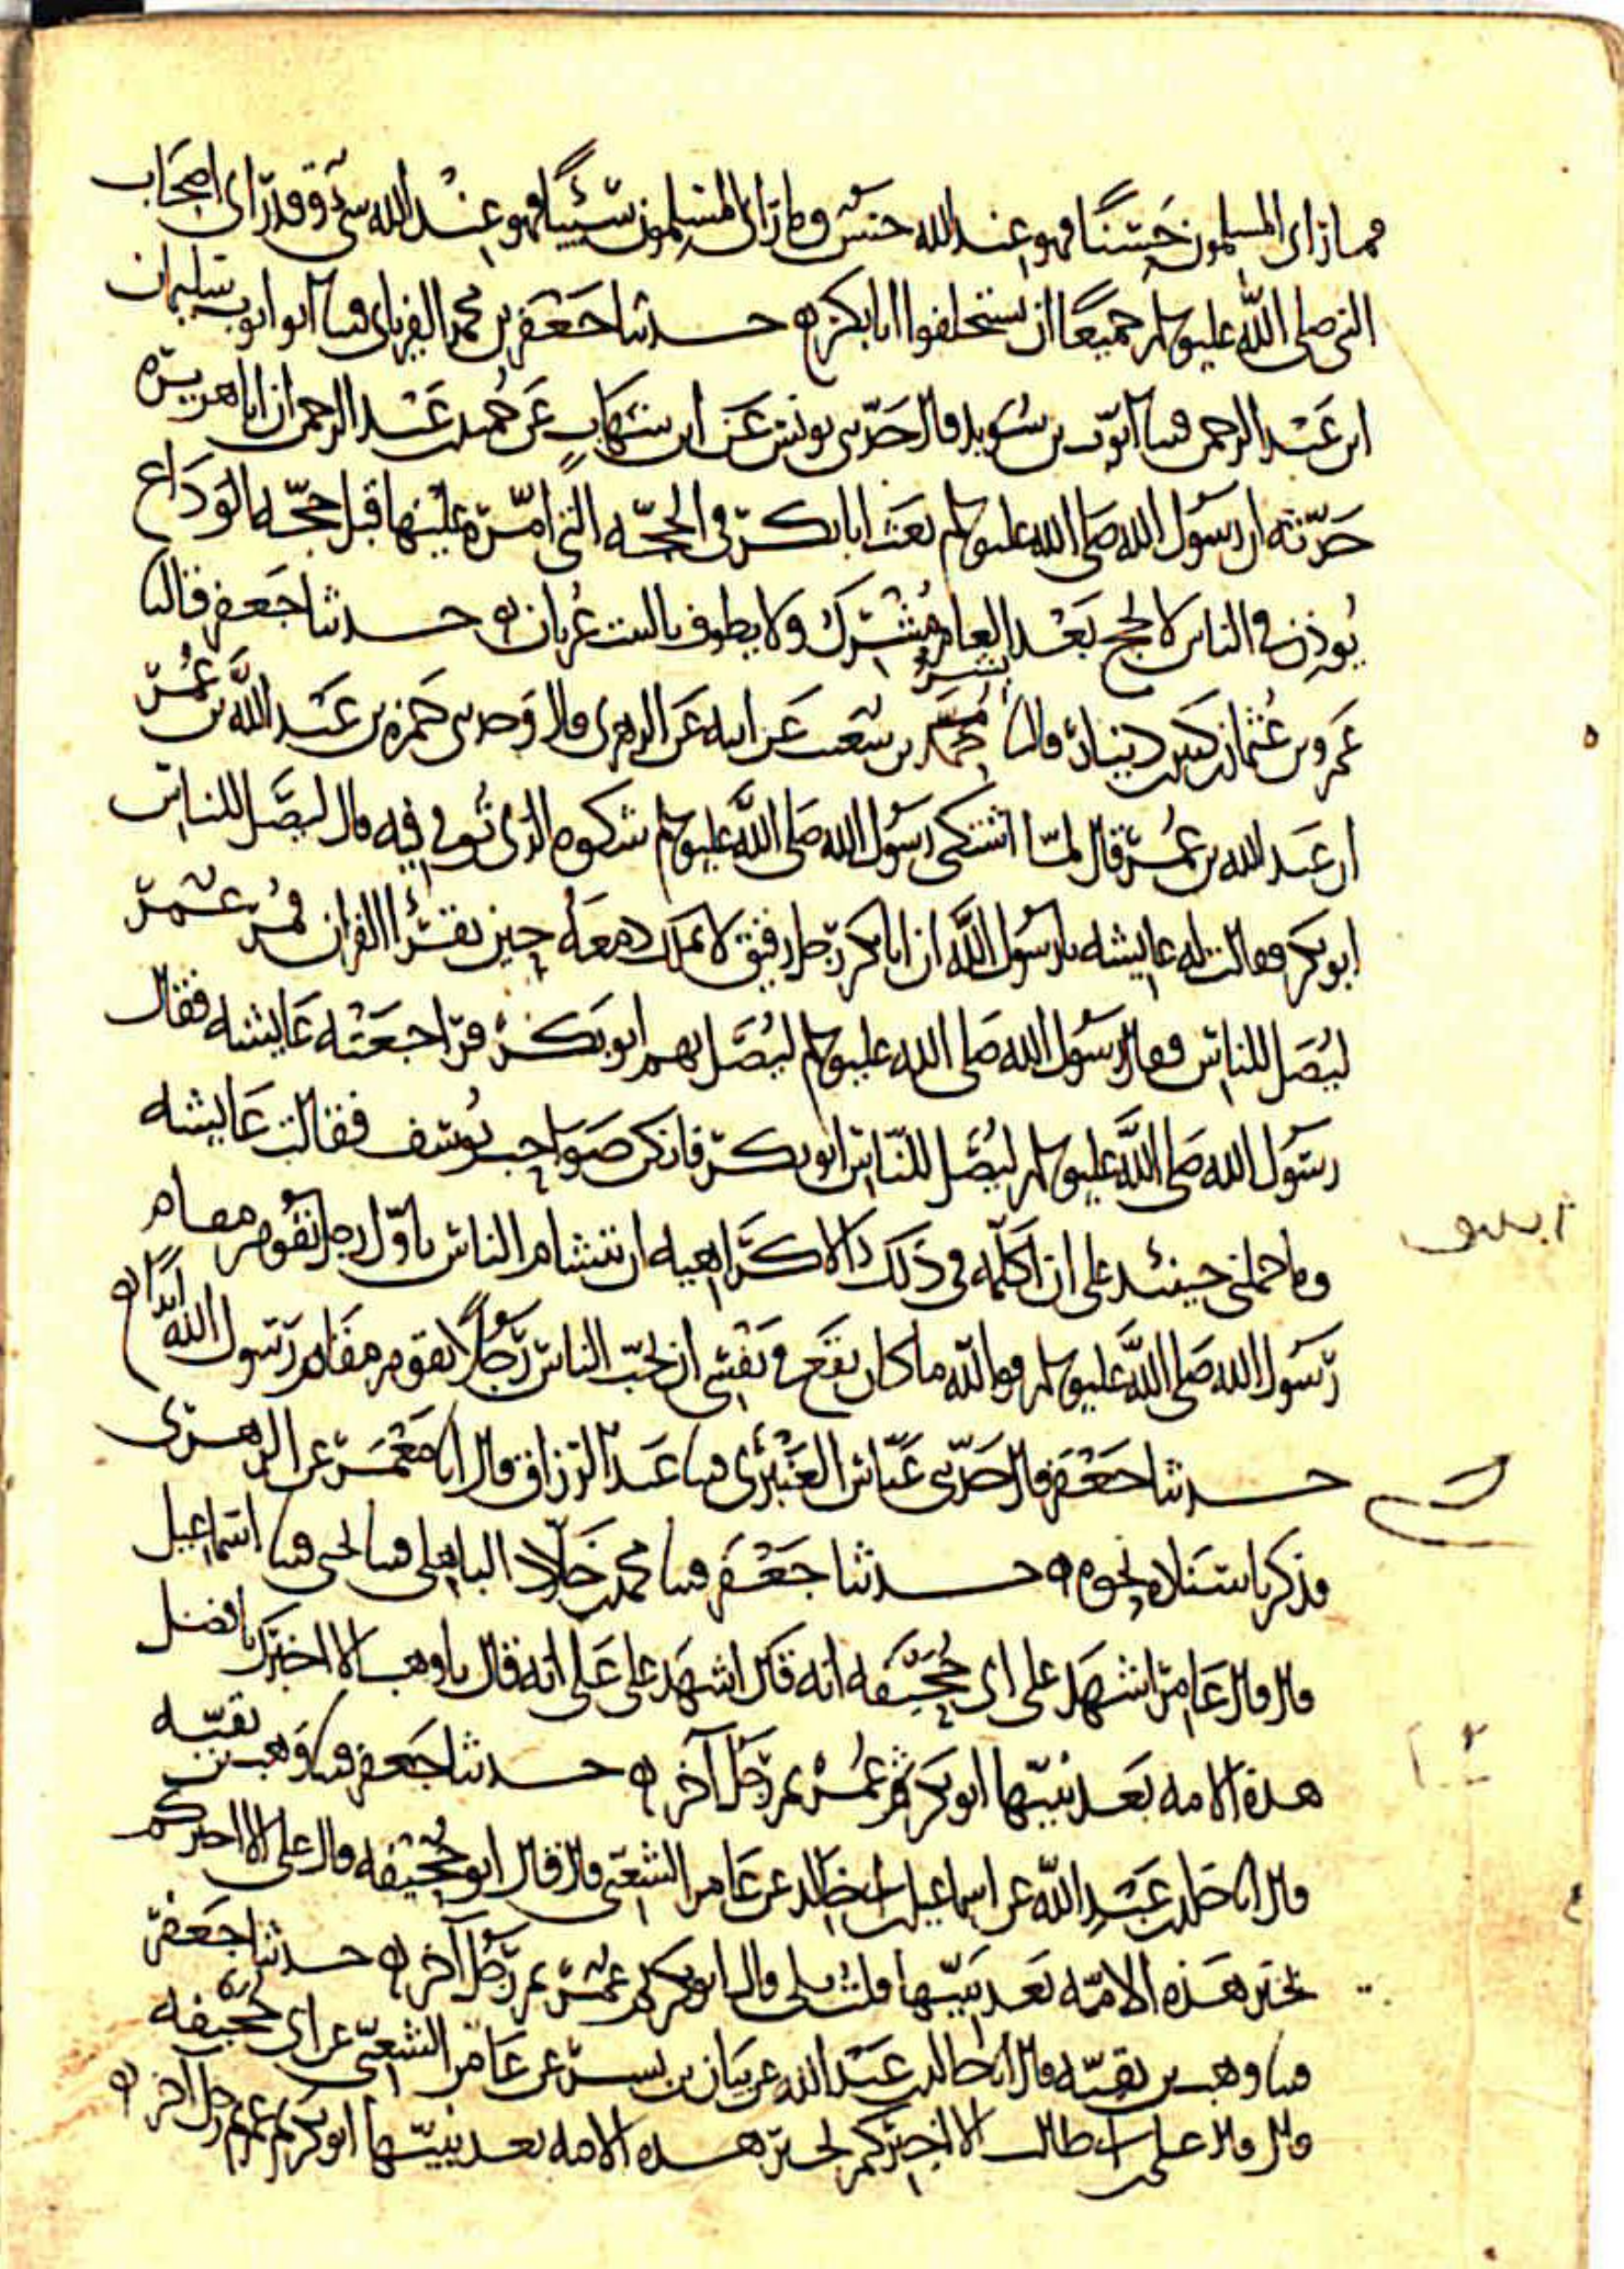 فما راى المسلمون حسنًا فهو عند الله حسن وما راى المسلمون سيئًا فهو عند الله سيئ وقد راى اصحاب
النبي صلى الله عليه وسلم جميعًا ان يستخلفوا ابا بكر ه حدثنا جعفر بن محمد الفريابي قثنا ابو ايوب سليمان
ابن عبد الرحمن قثنا ايوب بن سويد قال حدثني يونس عن ابن شهاب عن حميد بن عبد الرحمن ان ابا هريرة
حدثه ان رسول الله صلى الله عليه وسلم بعث ابا بكر في الحجه التي امره عليها قبل حجه الوداع
يوذن في الناس لا يحج بعد العام مشرك ولا يطوف بالبيت عريان ه حدثنا جعفر قال نا
عمرو بن عثمان بن كثير بن دينار قال نا بشر بن شعيب عن ابيه عن الزهري قال وحدثني حمزه بن عبد الله بن عمر
ان عبد الله بن عمر قال لما اشتكى رسول الله صلى الله عليه وسلم شكوه الذي توفي فيه قال ليصل للناس
ابو بكر فقالت له عايشه يا رسول الله ان ابا بكر رجل رقيق لا يملك دمعه حين يقرأ القران فمر عمر
ليصل للناس فقال رسول الله صلى الله عليه وسلم ليصل بهم ابو بكر فراجعته عايشه فقال
رسول الله صلى الله عليه وسلم ليصل للناس ابو بكر فانكن صواحب يوسف فقالت عايشه
وما حملني حينئد على ان اكلمه في ذلك الا كراهيه ان يتشام الناس باول رجل يقوم مقام
رسول الله صلى الله عليه وسلم فوالله ما كان يقع في نفسي ان يحب الناس رجلًا يقوم مقام رسول الله ابدًا ه
حدثنا جعفر قال حدثني عباس العنبري قثنا عبد الرزاق قال انا معمر عن الزهري
فذكر باسناده نحوه ه حدثنا جعفر قثنا محمد بن خلاد الباهلي قثنا يحيى قثنا اسماعيل
قال قال عامر اشهد على ابي جحيفه انه قال اشهد على علي انه قال يا وهب الا اخبرك بافضل
هذه الامه بعد نبيها ابو بكر ثم عمر ثم رجل آخر ه حدثنا جعفر قثنا وهب بن بقيه
قال انا خالد بن عبد الله عن اسماعيل بن ابي خالد عن عامر الشعبي قال قال ابو جحيفه قال علي الا اخبركم
بخير هذه الامه بعد نبيها قلت بلى قال ابو بكر ثم عمر ثم رجل آخر ه حدثنا جعفر
قثنا وهب بن بقيه قال انا خالد بن عبد الله عن بيان بن بسر عن عامر الشعبي عن ابي جحيفه
قال قال علي بن ابي طالب الا اخبركم بخير هذه الامه بعد نبيها ابو بكر ثم عمر ثم رجل آخر ه